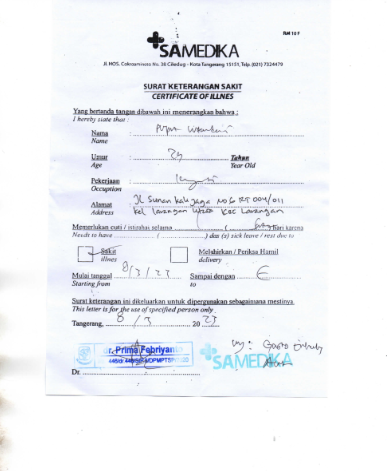 RM 10 F
SAMEDIKA
Jl. HOS. Cokroaminoto No. 38 Ciledug - Kota Tangerang 15151, Telp. (021) 7324470
SURAT KETERANGAN SAKIT
CERTIFICATE OF ILLNES
Yang bertanda tangan dibawah ini menerangkan bahwa :
I hereby state that :
Nama :
Name
Umur : Tahun
Age Year Old
Pekerjaan :
Occuption
Alamat : Jl Sunan Kalijaga No 6 RT 004/011
Address Kel Larangan Utara Kec Larangan
Memerlukan cuti / istirahat selama ( ) Hari karena
Needs to have ( ) das (s) sick leave / rest due to
Sakit Melahirkan / Periksa Hamil
illnes delivery
Mulai tanggal 8/3/23 Sampai dengan
Starting from to
Surat keterangan ini dikeluarkan untuk dipergunakan sebagaimana mestinya.
This letter is for the use of specified person only
Tangerang, 8 / 3 20 23
dr. Prima Febriyanti
SAMEDIKA
Dr